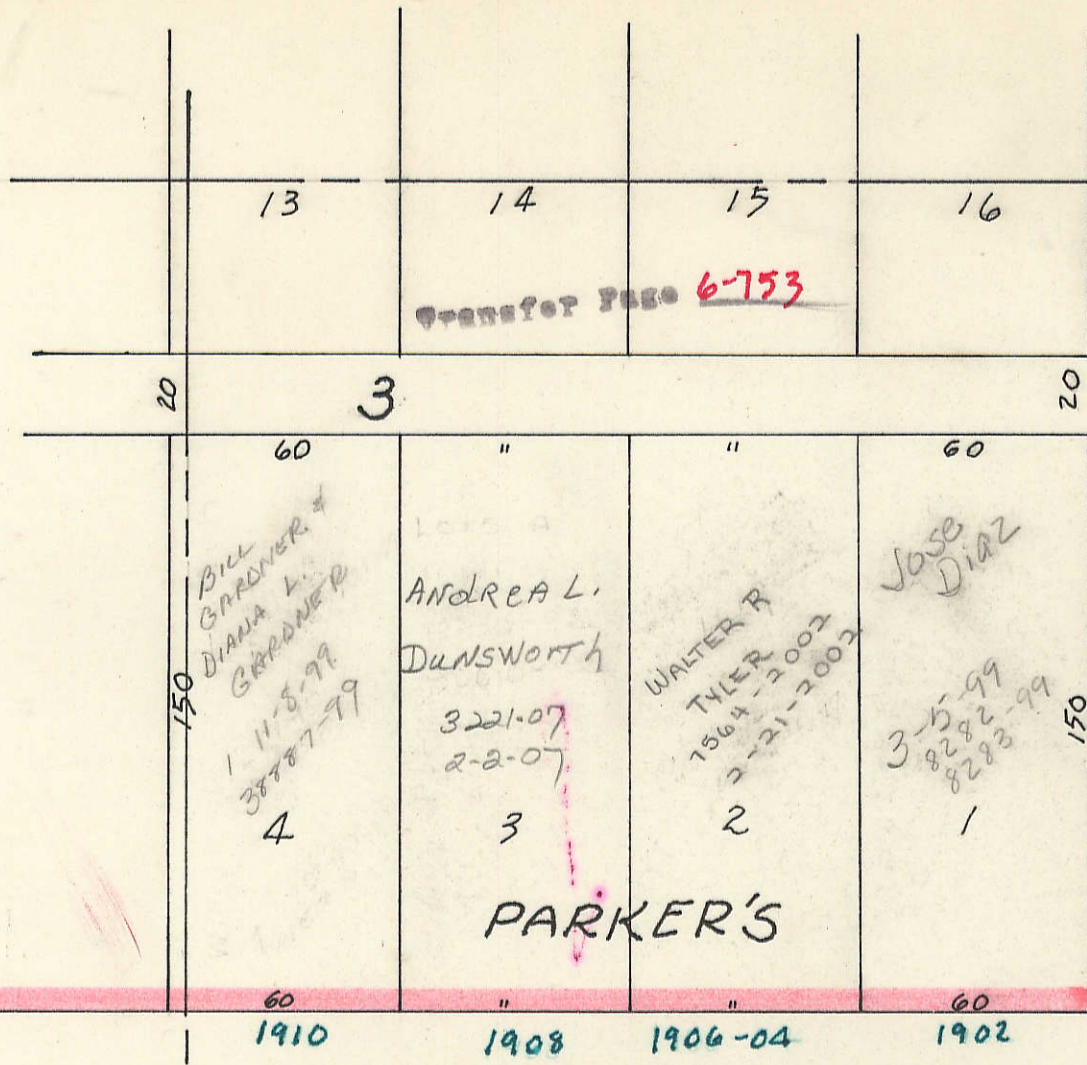 13 14 15 16
Transfer Page 6-753
20 3 20
60 " " 60
BILL
GARDNER &
DIANA L.
GARDNER
11-8-99
38887-99
150
4
LOIS A
ANDREA L.
DUNSWORTH
3221-07
2-2-07
3
WALTER R
TYLER
7564-2002
2-21-2002
2
Jose
Diaz
3-5-99
8282
8283-99
150
1
PARKER'S
60 " " 60
1910 1908 1906-04 1902